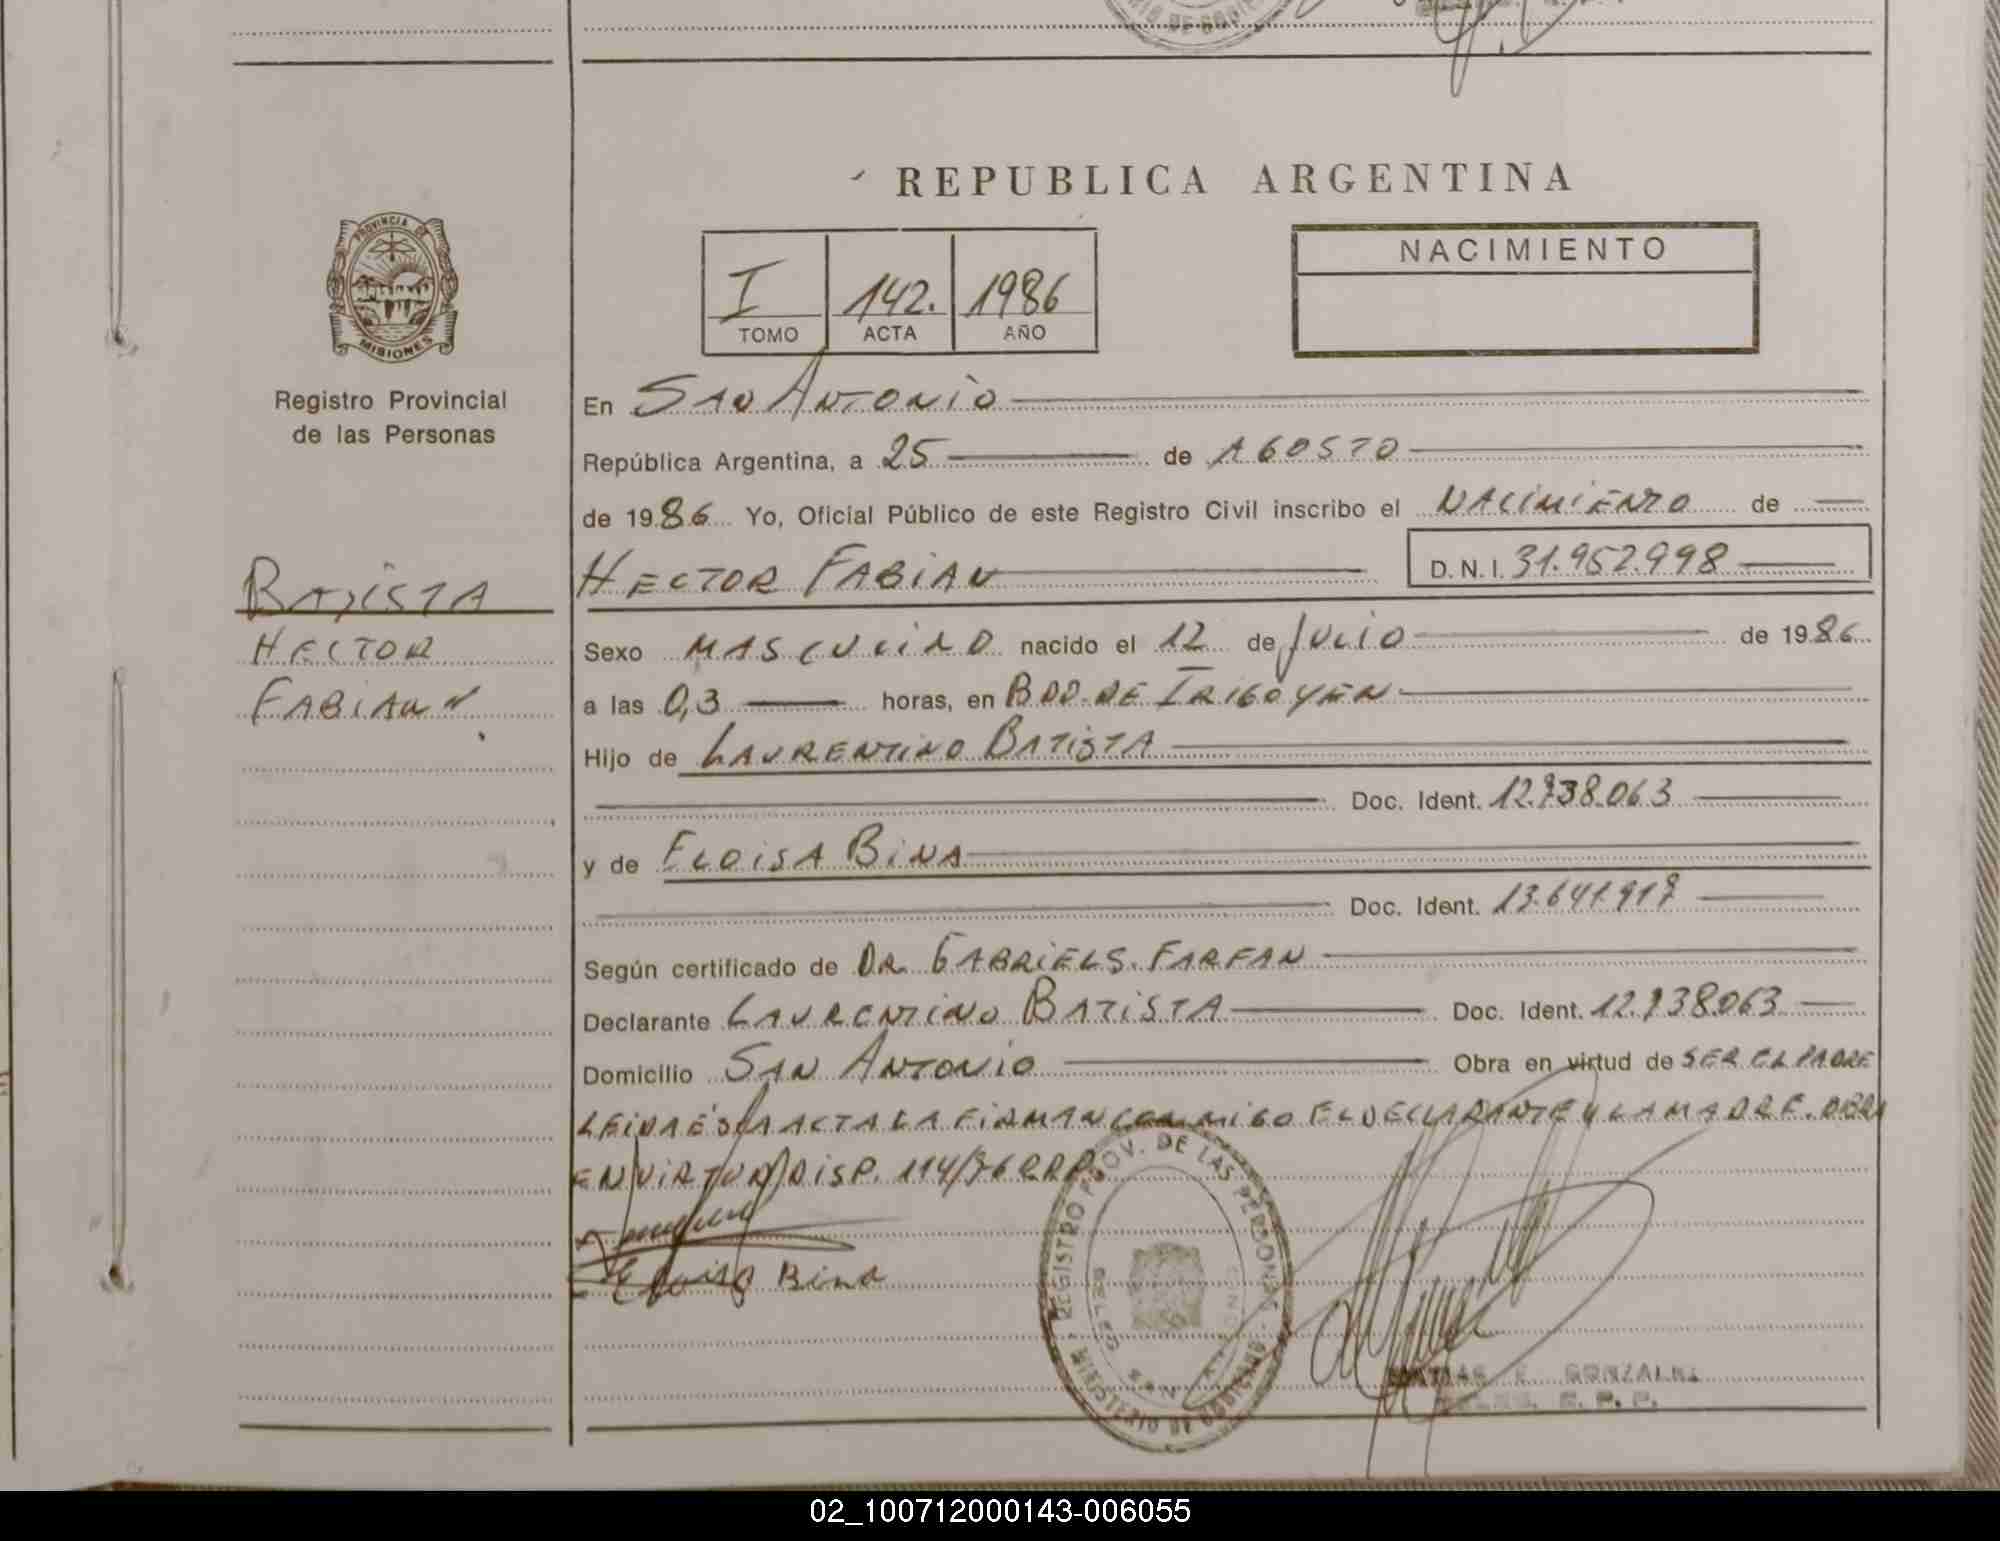 REPUBLICA ARGENTINA
PROVINCIA DE
MISIONES
Registro Provincial
de las Personas
I 142. 1986
TOMO ACTA AÑO
NACIMIENTO
En SAN ANTONIO
República Argentina, a 25 de AGOSTO
de 1986 Yo, Oficial Público de este Registro Civil inscribo el NACIMIENTO de
HECTOR FABIAN D. N. I. 31.952.998
BATISTA
HECTOR
FABIAN
Sexo MASCULINO nacido el 12 de JULIO de 1986
a las 0,3 horas, en BDO. DE IRIGOYEN
Hijo de LAURENTINO BATISTA
Doc. Ident. 12.738.063
y de ELOISA BINA
Doc. Ident. 13.641.917
Según certificado de DR. GABRIEL S. FARFAN
Declarante LAURENTINO BATISTA Doc. Ident. 12.738.063
Domicilio SAN ANTONIO Obra en virtud de SER EL PADRE
LEIDA ÉSTA ACTA LA FIRMAN CONMIGO EL DECLARANTE Y LA MADRE. OBRA
EN VIRTUD DISP. 114/76 RPP.
Eloisa Bina
REGISTRO PROV. DE LAS PERSONAS
MINISTERIO DE GOBIERNO
GONZALEZ
02_100712000143-006055